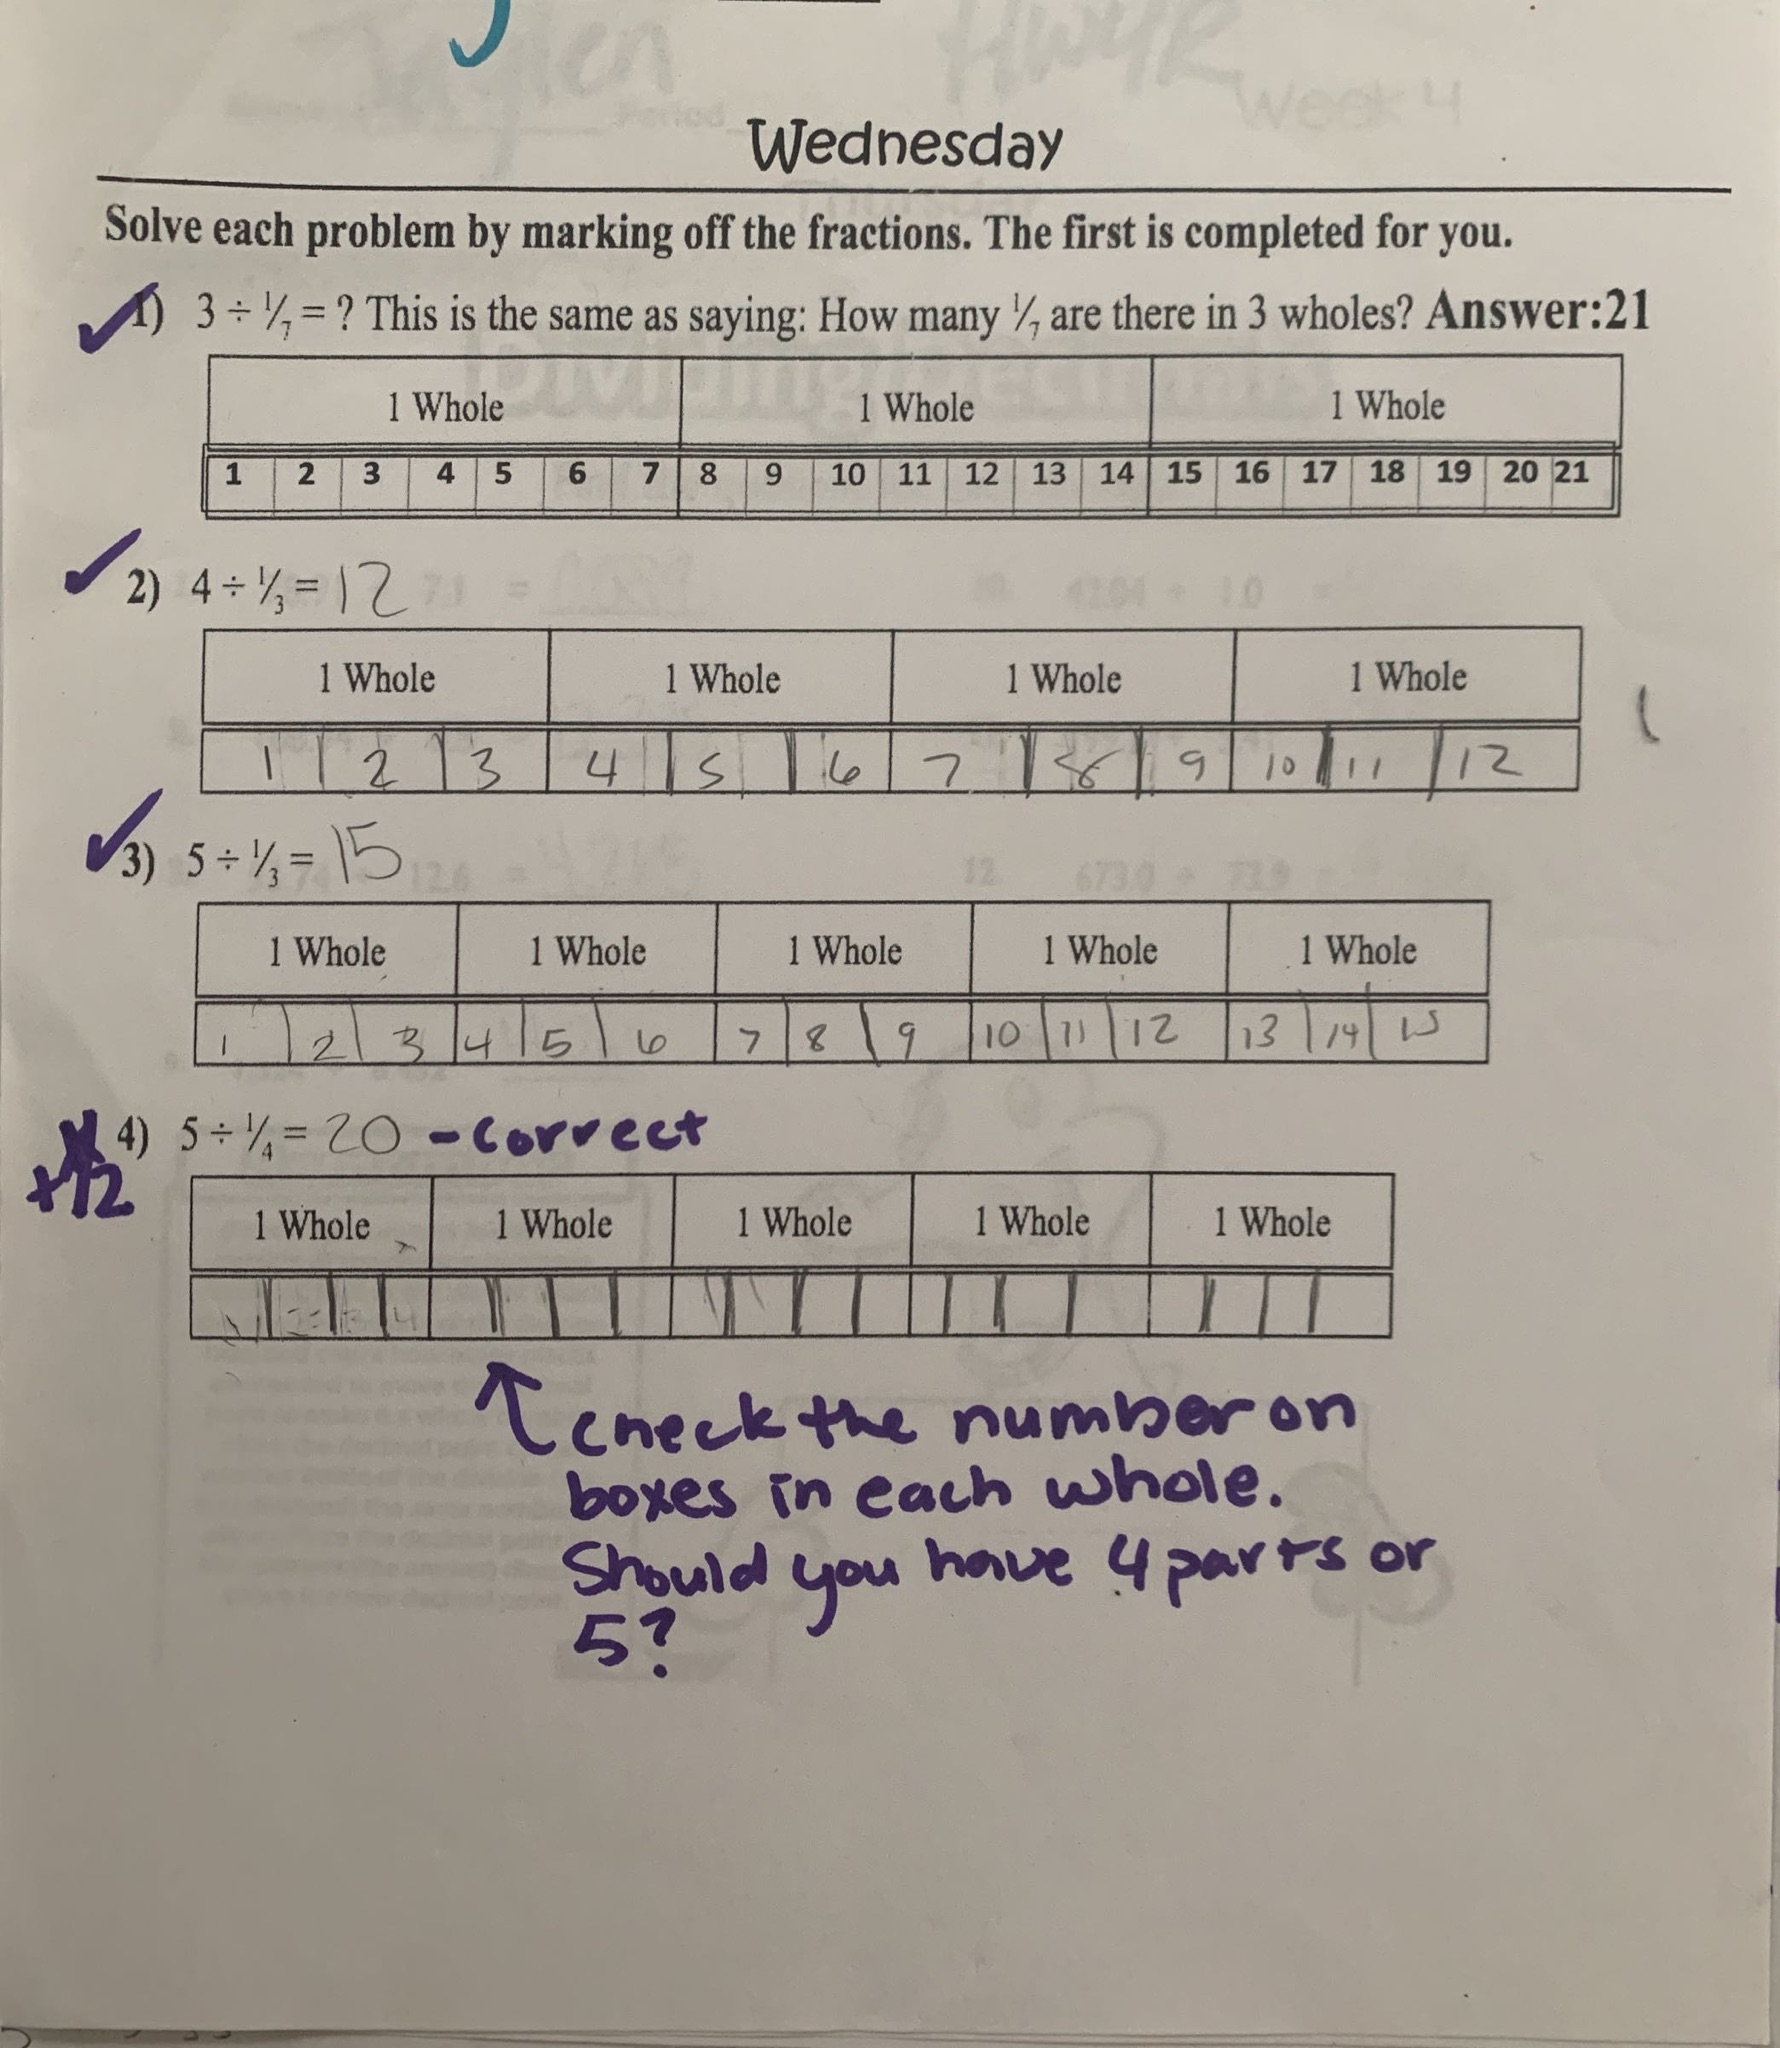 Week 4
Wednesday
Solve each problem by marking off the fractions. The first is completed for you.
1) 3 ÷ 1/7 = ? This is the same as saying: How many 1/7 are there in 3 wholes? Answer:21
1 Whole 1 Whole 1 Whole
1 2 3 4 5 6 7 8 9 10 11 12 13 14 15 16 17 18 19 20 21
2) 4 ÷ 1/3 = 12
1 Whole 1 Whole 1 Whole 1 Whole
1 2 3 4 5 6 7 8 9 10 11 12
3) 5 ÷ 1/3 = 15
1 Whole 1 Whole 1 Whole 1 Whole 1 Whole
1 2 3 4 5 6 7 8 9 10 11 12 13 14 15
4) 5 ÷ 1/4 = 20 - Correct
+1/2
1 Whole 1 Whole 1 Whole 1 Whole 1 Whole
1 2 3 4
check the number on
boxes in each whole.
Should you have 4 parts or
5?